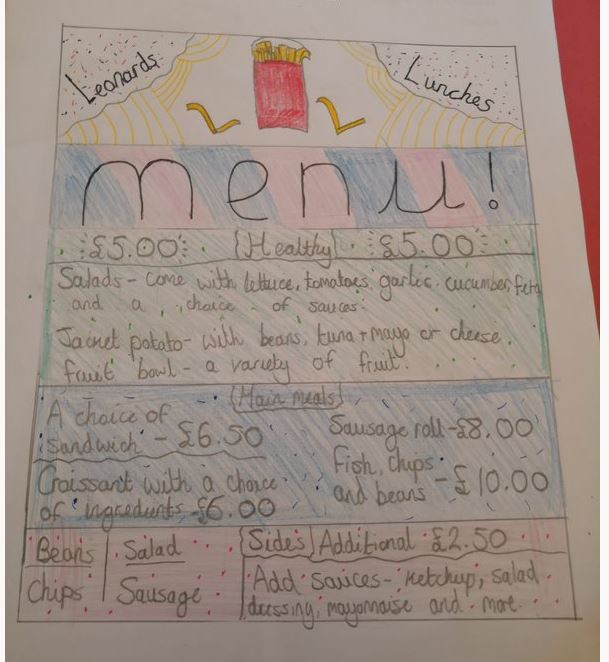 Leonards
Lunches
menu!
£5.00 Healthy £5.00
Salads - come with lettuce, tomatoes, garlic, cucumber, feta
and a choice of sauces.
Jacket potato - with beans, tuna + mayo or cheese.
fruit bowl - a variety of fruit.
Main meals
A choice of
sandwich - £6.50
Croissant with a choice
of ingredients - £6.00
Sausage roll - £8.00
Fish, chips
and beans - £10.00
Beans
Salad
Chips
Sausage
Sides Additional £2.50
Add sauces - ketchup, salad
dressing, mayonnaise and more.